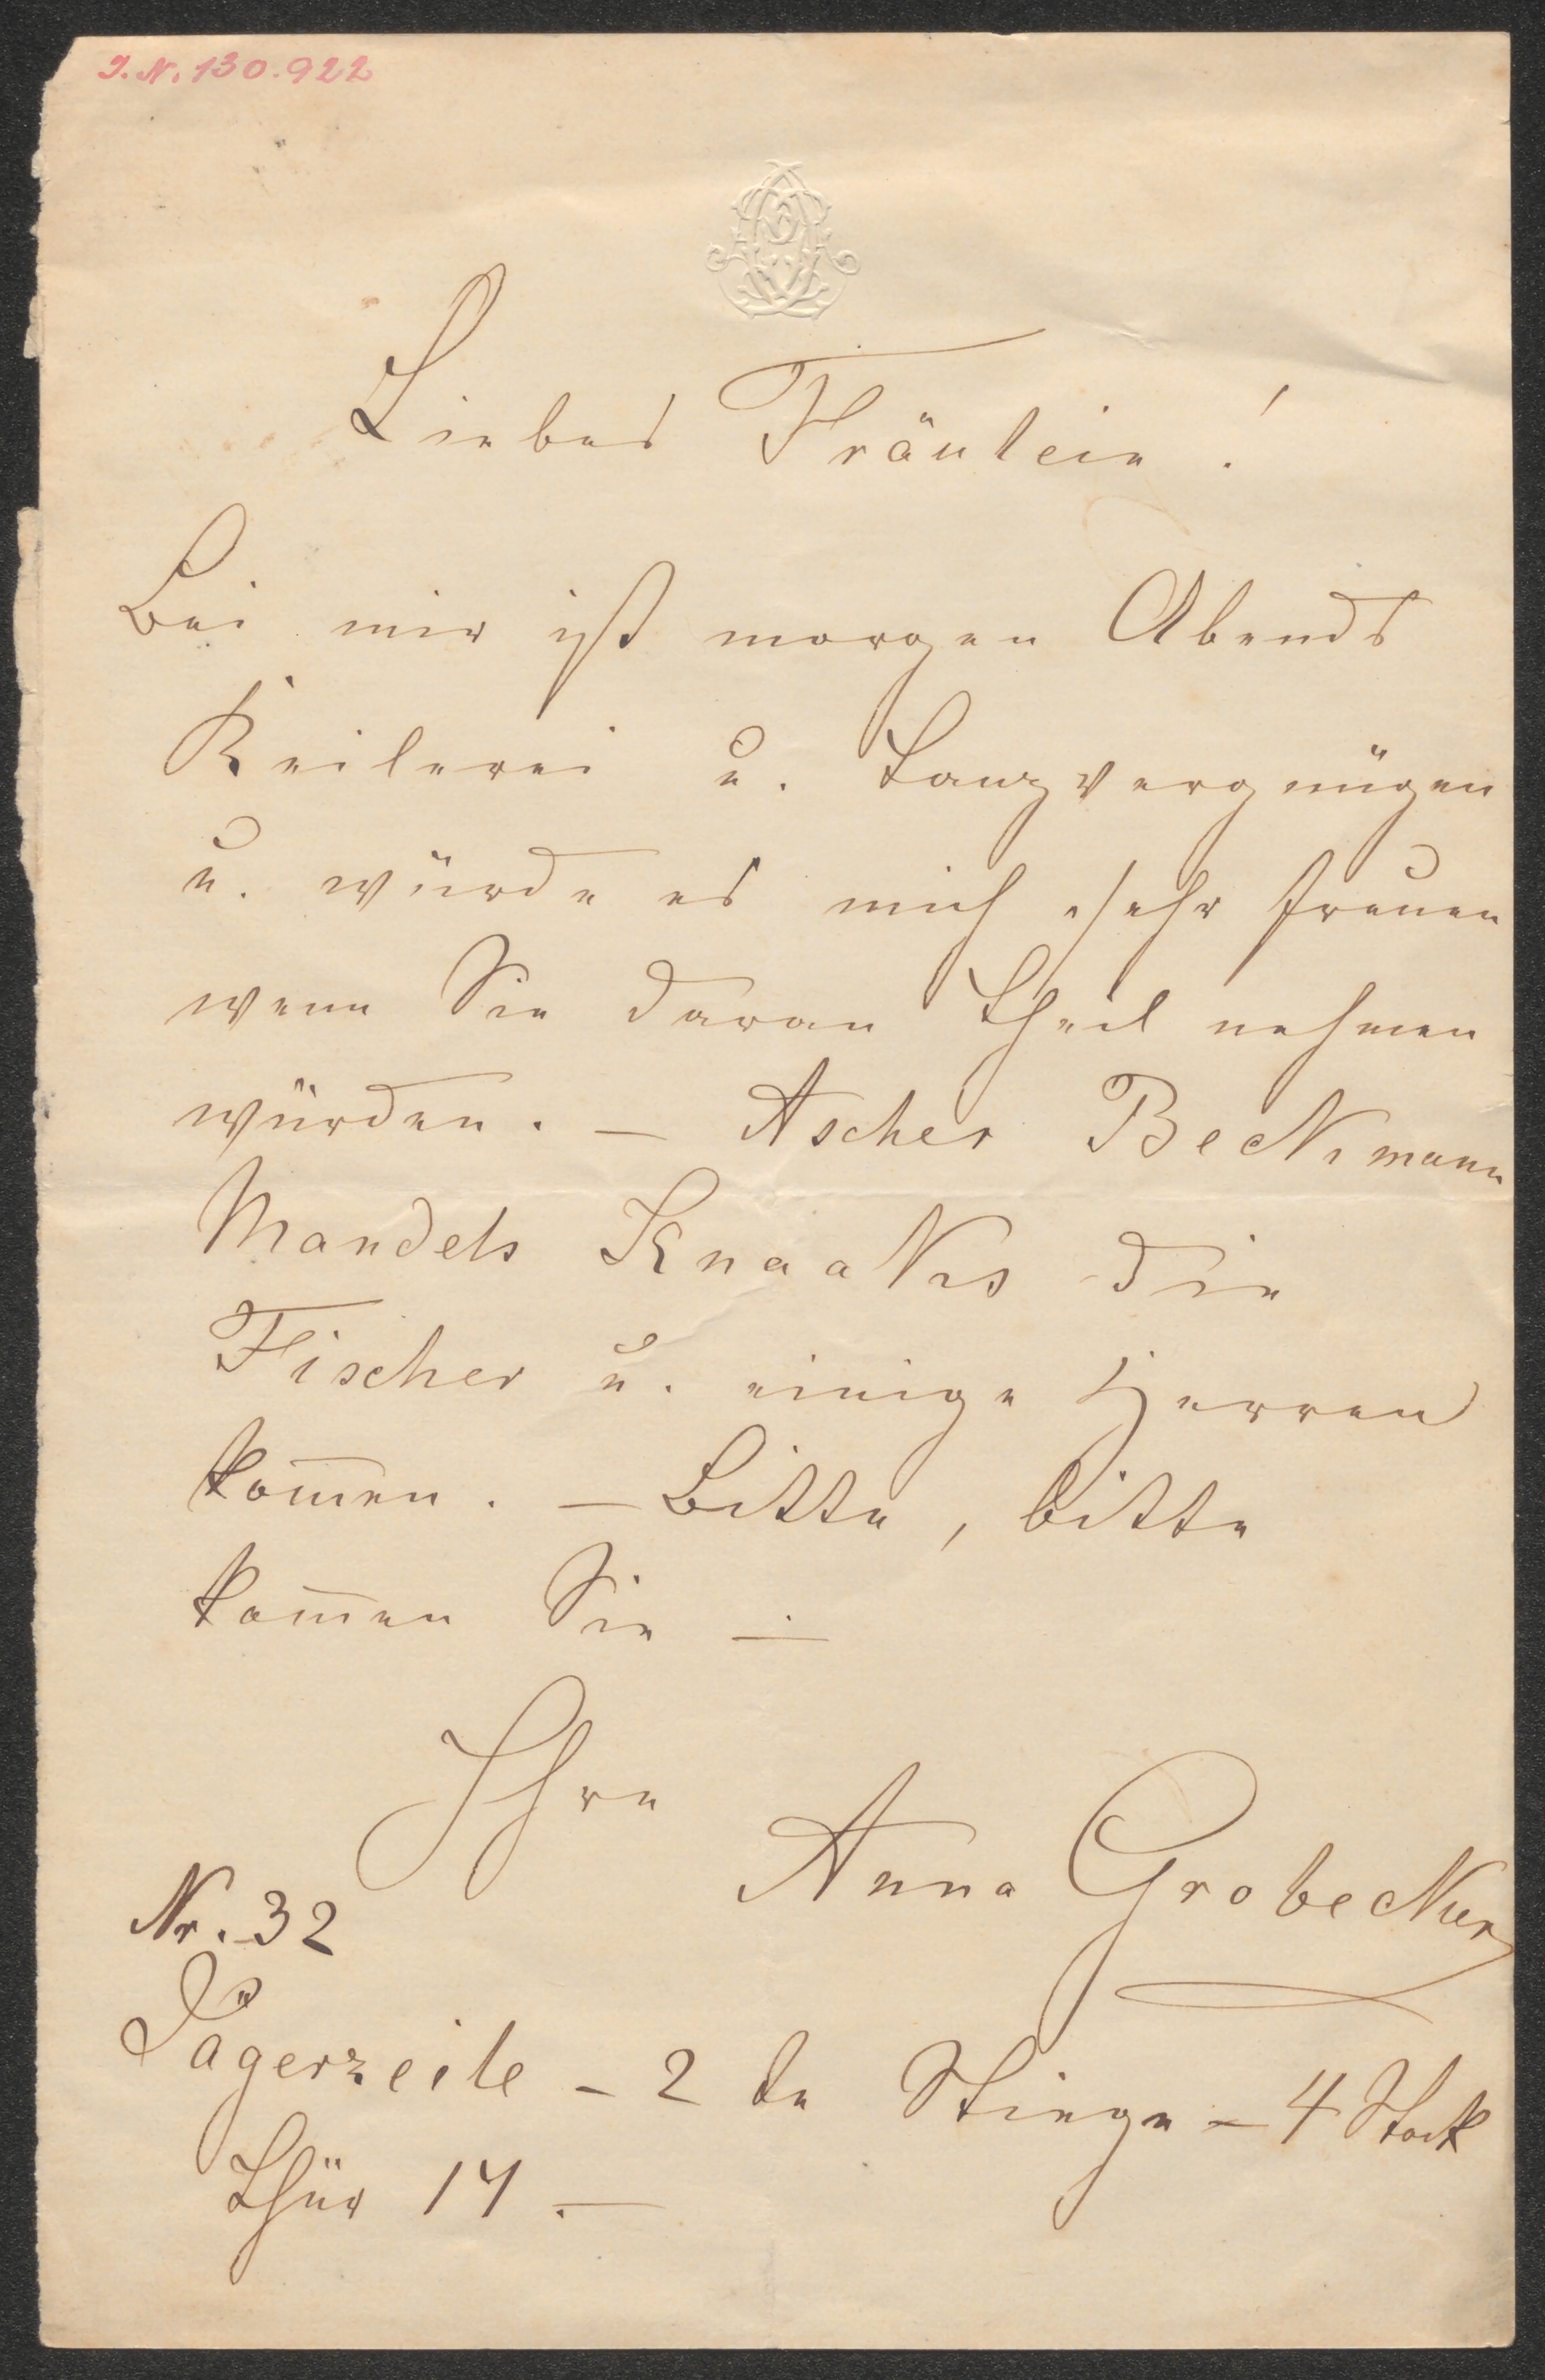 I. N. 130.922
Liebes Fräulein!
Bei mir ist morgen Abends
Keilerei u. Tanzvergnügen
u. würde es mich sehr freuen
wenn Sie daran Theil nehmen
würden. — Ascher Beckmann
Mandels Knaaks die
Fischer u. einige Herren
kom̅en. — Bitte, bitte
kom̅en Sie —
Ihre
Anna Grobecker
Nr. 32
Jägerzeile – 2te Stiege – 4 Stock
Thür 14. —